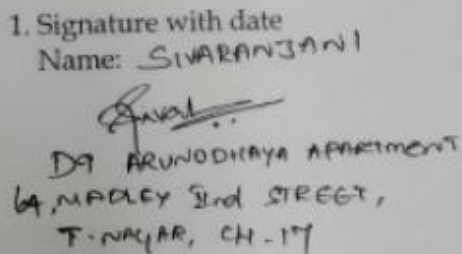 1. Signature with date
Name: SIVARANJANI
D9 ARUNODHAYA APARTMENT
64, MADLEY IInd STREET,
T. NAGAR, CH - 17